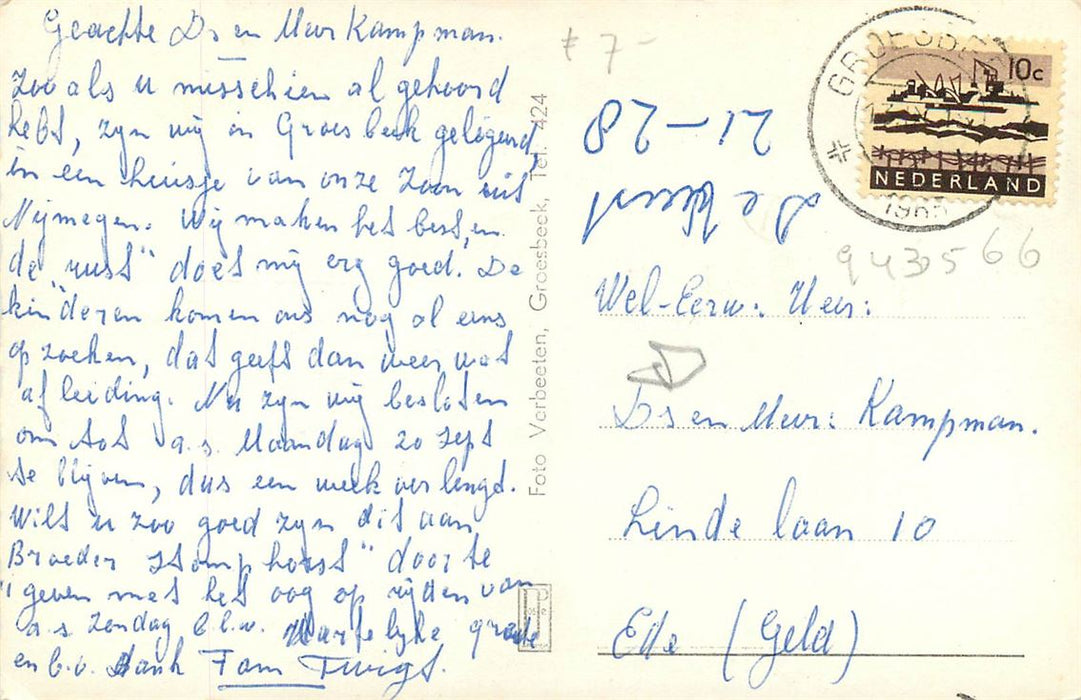 Geachte Ds en Mevr Kampman.
Zoo als u misschien al gehoord
hebt, zyn wy in Groesbeek gelogeerd,
in een huisje van onze Zoon uit
Nijmegen. Wy maken het best, en
de "rust" doet my erg goed. De
kinderen komen ons nog al eens
op zoeken, dat geeft dan weer wat
afleiding. Nu zyn wy besloten
om tot a.s. Maandag 20 Sept
te blyven, dus een week verlengd.
Wilt u zoo goed zyn dit aan
Broeder Stomphorst" door te
geven met het oog op rijden van
a.s. Zondag b.b.w. Hartelyke groete
en b.v. dank Fam Twigt.
Foto Verbeeten, Groesbeek, Tel. 424
€ 7-
21-28
GROESBEEK
1965
10c
NEDERLAND
9435566
Wel-Eerw: Heer:
Ds en Mevr: Kampman.
Linde laan 10
Ede (Geld)